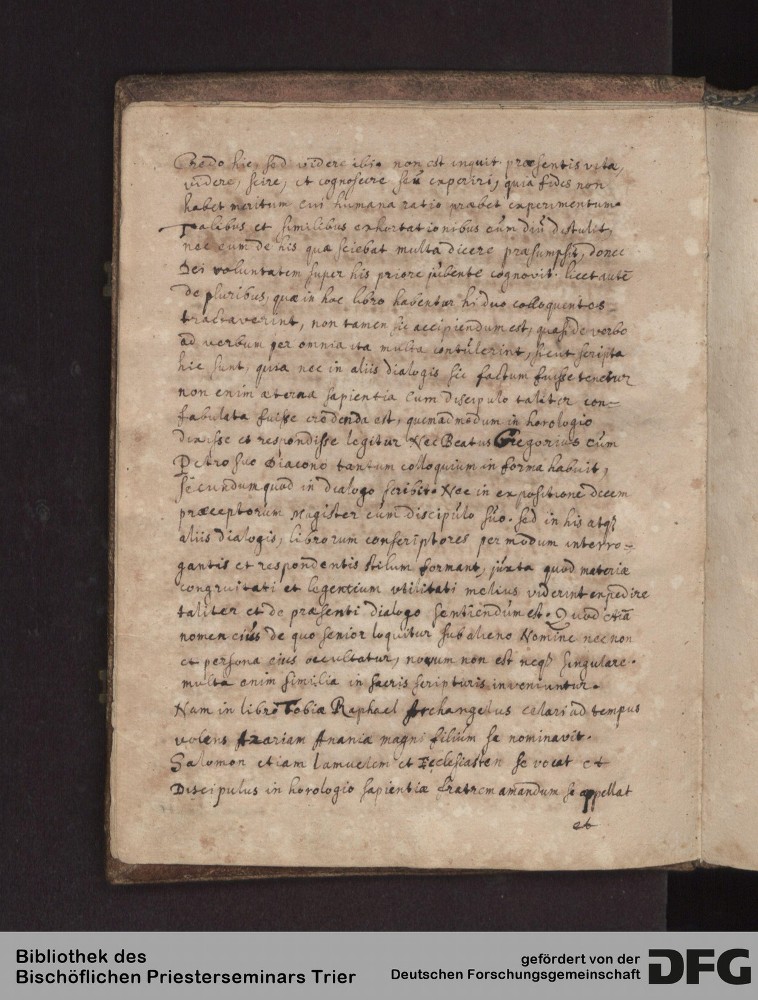 Credo hic, sed videre ibi. non est inquit præsentis vita,
videre, scire, et cognoscere seú experiri, quia fides non
habet meritum cui humana ratio præbet experimentum.
Talibus et similibus exhortationibus cúm diú distulit,
nec eum de his quæ sciebat multa dicere præsumpsit, donec
Dei voluntatem super his priore jubente cognovit. licet autē
de pluribus, quæ in hoc libro habentur, hi duo colloquentes
tractaverint, non tamen sic accipiendum est, quasi de verbo
ad verbum per omnia ita multa contúlerint, sicut scripta
hic sunt, quia nec in aliis dialogis sic factum fuisse tenetur
non enim æterna sapientia cum discipulo taliter con-
fabulata fuisse credenda est, quemadmodum in horologio
dixisse et respondisse legitur Nec Beatus Gregorius cúm
Petro suo diacono tantum colloquium in forma habuit,
secundum quod in dialogo scribit. Nec in expositione decem
præceptorum Magister cúm discipúlo súo. sed in his atq3
aliis dialogis, librorum conscriptores per modum interro-
gantis et respondentis stilum formant, júxta quod materiæ
congruitati et legentium utilitati melius viderint expedire
taliter et de præsenti dialogo sentiendúm est. Quod etiā
nomen eiús de quo senior loquitur sub alieno Nomine necnon
et persona eius occultatur, novum non est neq3 singulare.
multa enim similia in sacris scripturis inveniuntur.
Nam in libro Tobiæ Raphael Archangelus celari ad tempus
volens Azariam Ananiæ magni filium se nominavit.
Salomon etiam lamuelem et Ecclesiasten se vocat et
Discipulus in horologio sapientiæ fratrem amandum se appellat
et
Bibliothek des
Bischöflichen Priesterseminars Trier
gefördert von der
Deutschen Forschungsgemeinschaft
DFG